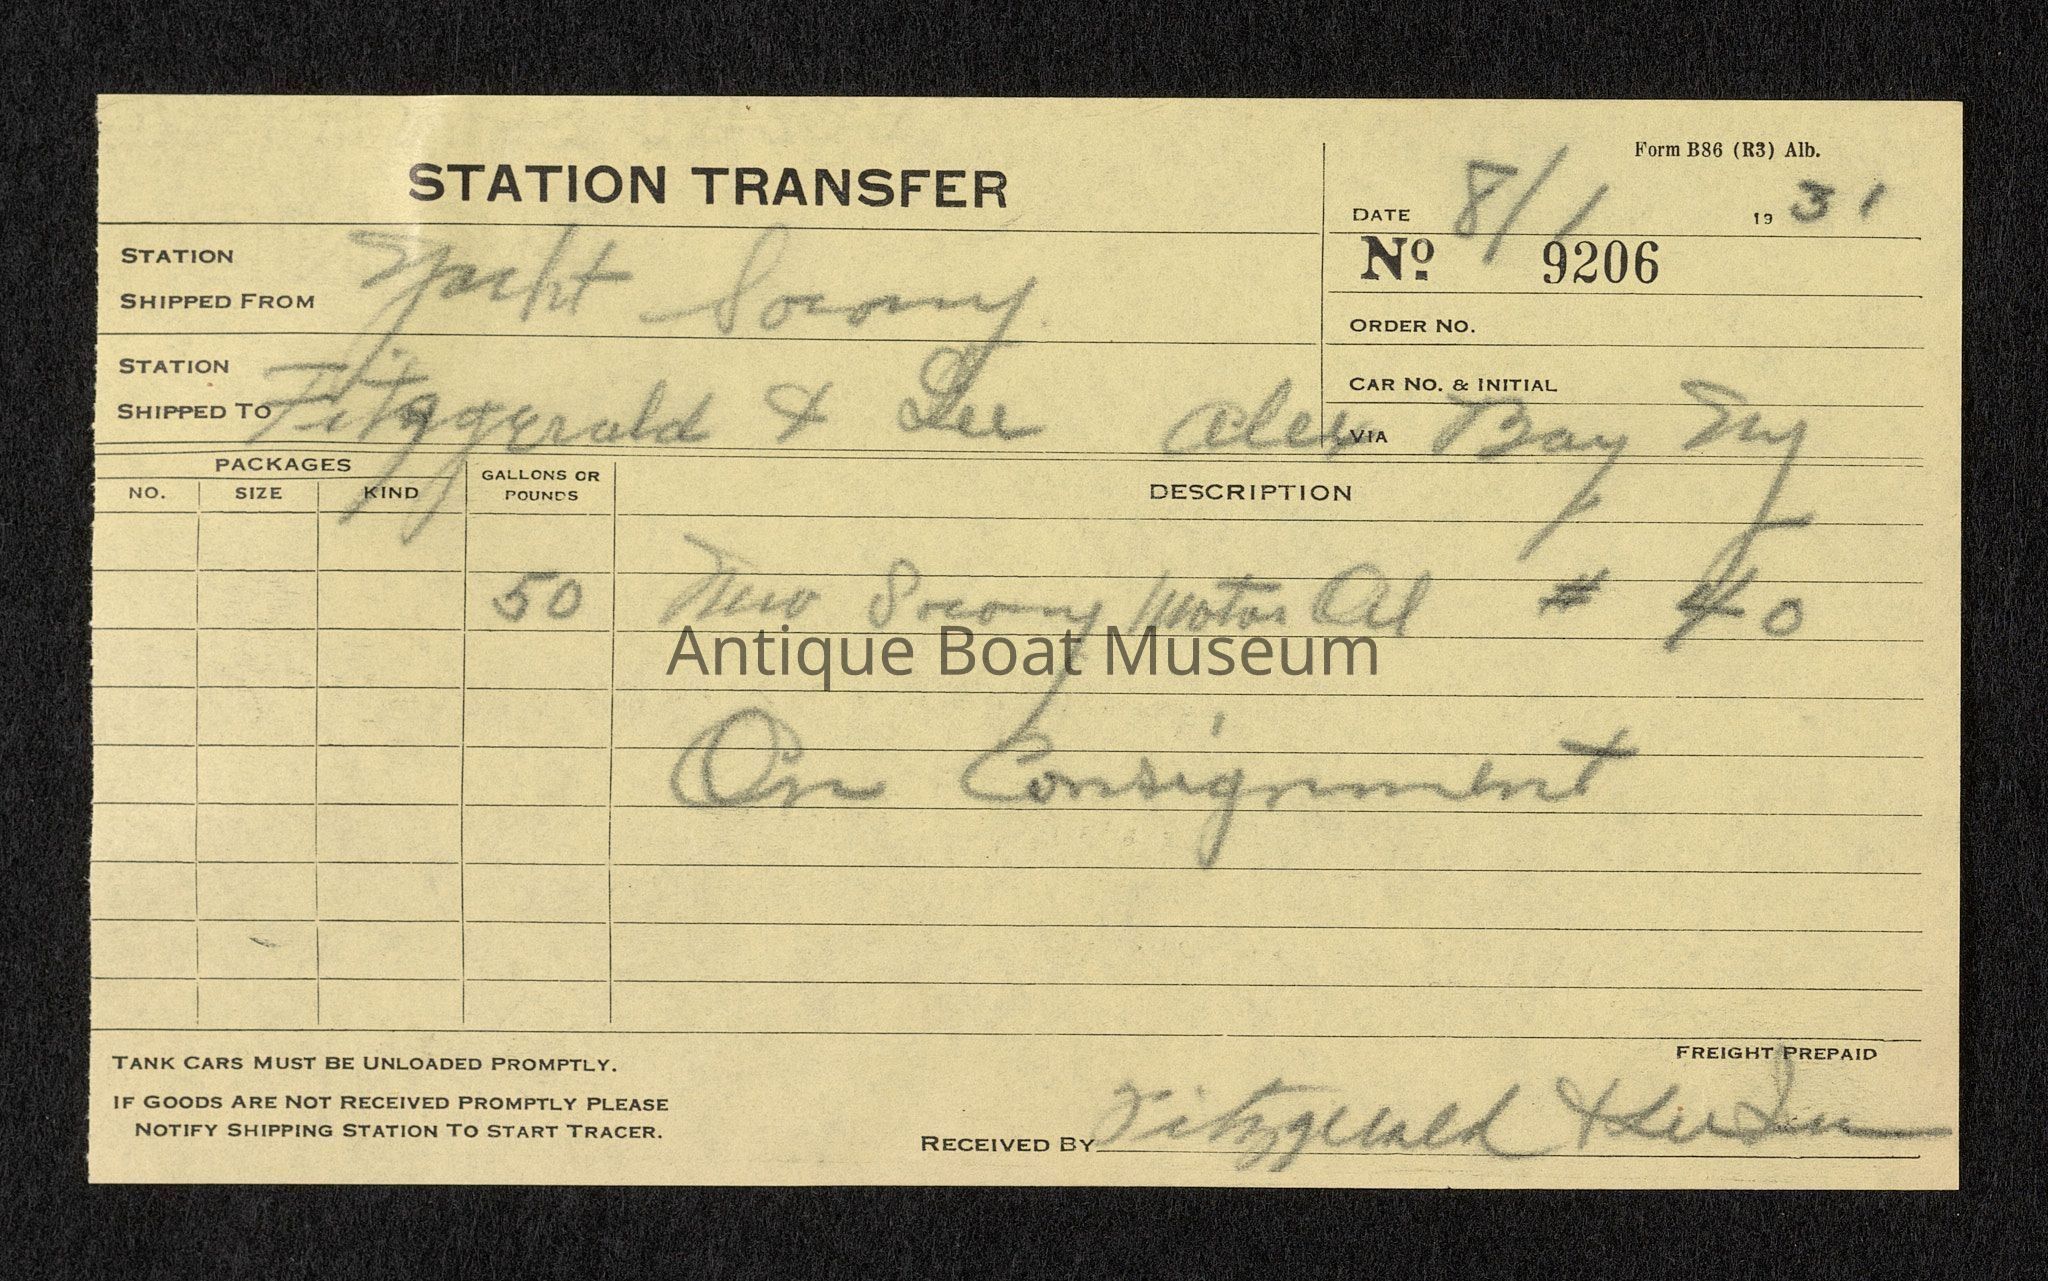 Form B86 (R3) Alb.
STATION TRANSFER
DATE 8/1 1931
No. 9206
STATION SHIPPED FROM Yacht Socony
ORDER NO.
CAR NO. & INITIAL
STATION SHIPPED TO Fitzgerald & Lee Alex Bay Ny
VIA
PACKAGES
NO. SIZE KIND GALLONS OR POUNDS DESCRIPTION
50 New Socony Motor Oil # 40
Antique Boat Museum
On Consignment
FREIGHT PREPAID
TANK CARS MUST BE UNLOADED PROMPTLY.
IF GOODS ARE NOT RECEIVED PROMPTLY PLEASE
NOTIFY SHIPPING STATION TO START TRACER.
RECEIVED BY Fitzgerald & Lee